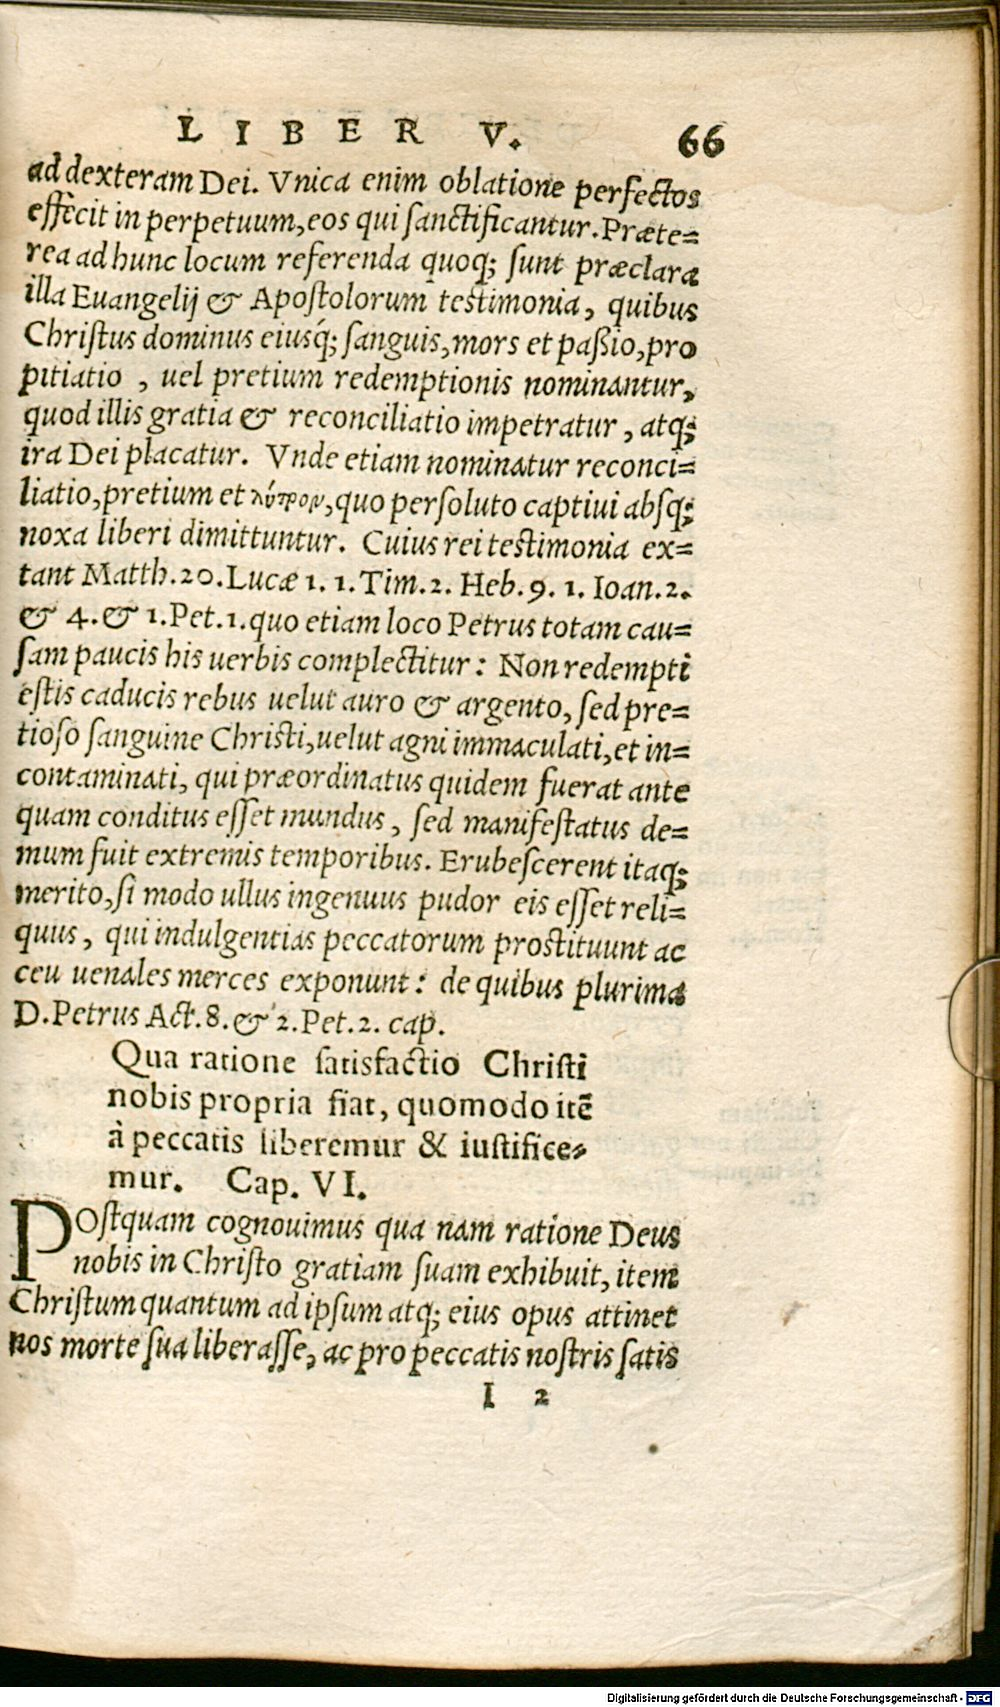 LIBER V. 66
ad dexteram Dei. Vnica enim oblatione perfectos
effecit in perpetuum, eos qui sanctificantur. Præte=
rea ad hunc locum referenda quoq; sunt præclara
illa Euangelij & Apostolorum testimonia, quibus
Christus dominus eiusq́; sanguis, mors et passio, pro
pitiatio, uel pretium redemptionis nominantur,
quod illis gratia & reconciliatio impetratur, atq;
ira Dei placatur. Vnde etiam nominatur reconci=
liatio, pretium et λύτρον, quo persoluto captiui absq;
noxa liberi dimittuntur. Cuius rei testimonia ex=
tant Matth. 20. Lucæ 1. 1. Tim. 2. Heb. 9. 1. Ioan. 2.
& 4. & 1. Pet. 1. quo etiam loco Petrus totam cau=
sam paucis his uerbis complectitur: Non redempti
estis caducis rebus uelut auro & argento, sed pre=
tioso sanguine Christi, uelut agni immaculati, et in=
contaminati, qui præordinatus quidem fuerat ante
quam conditus esset mundus, sed manifestatus de=
mum fuit extremis temporibus. Erubescerent itaq;
merito, si modo ullus ingenuus pudor eis esset reli=
quus, qui indulgentias peccatorum prostituunt ac
ceu uenales merces exponunt: de quibus plurima
D. Petrus Act. 8. & 2. Pet. 2. cap.
Qua ratione satisfactio Christi
nobis propria fiat, quomodo itē
à peccatis liberemur & iustifice=
mur. Cap. VI.
POstquam cognouimus qua nam ratione Deus
nobis in Christo gratiam suam exhibuit, item
Christum quantum ad ipsum atq; eius opus attinet
nos morte sua liberasse, ac pro peccatis nostris satis
I 2
Digitalisierung gefördert durch die Deutsche Forschungsgemeinschaft - DFG